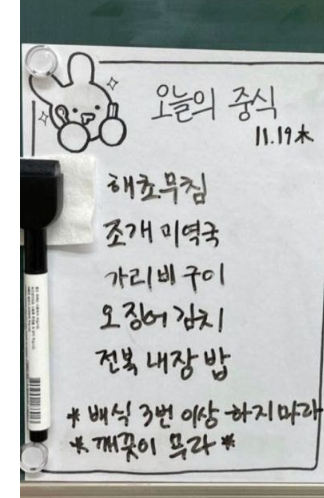 오늘의 중식
11.19木
해초무침
조개 미역국
가리비 구이
오징어 김치
전복 내장 밥
* 배식 3번 이상 하지마라
* 깨끗이 무라 *